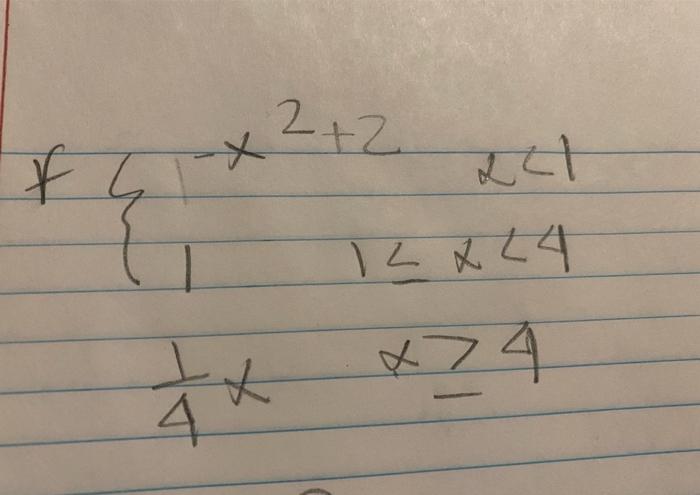 f { -x² + 2 x < 1
1 1 ≤ x < 4
1/4 x x ≥ 4